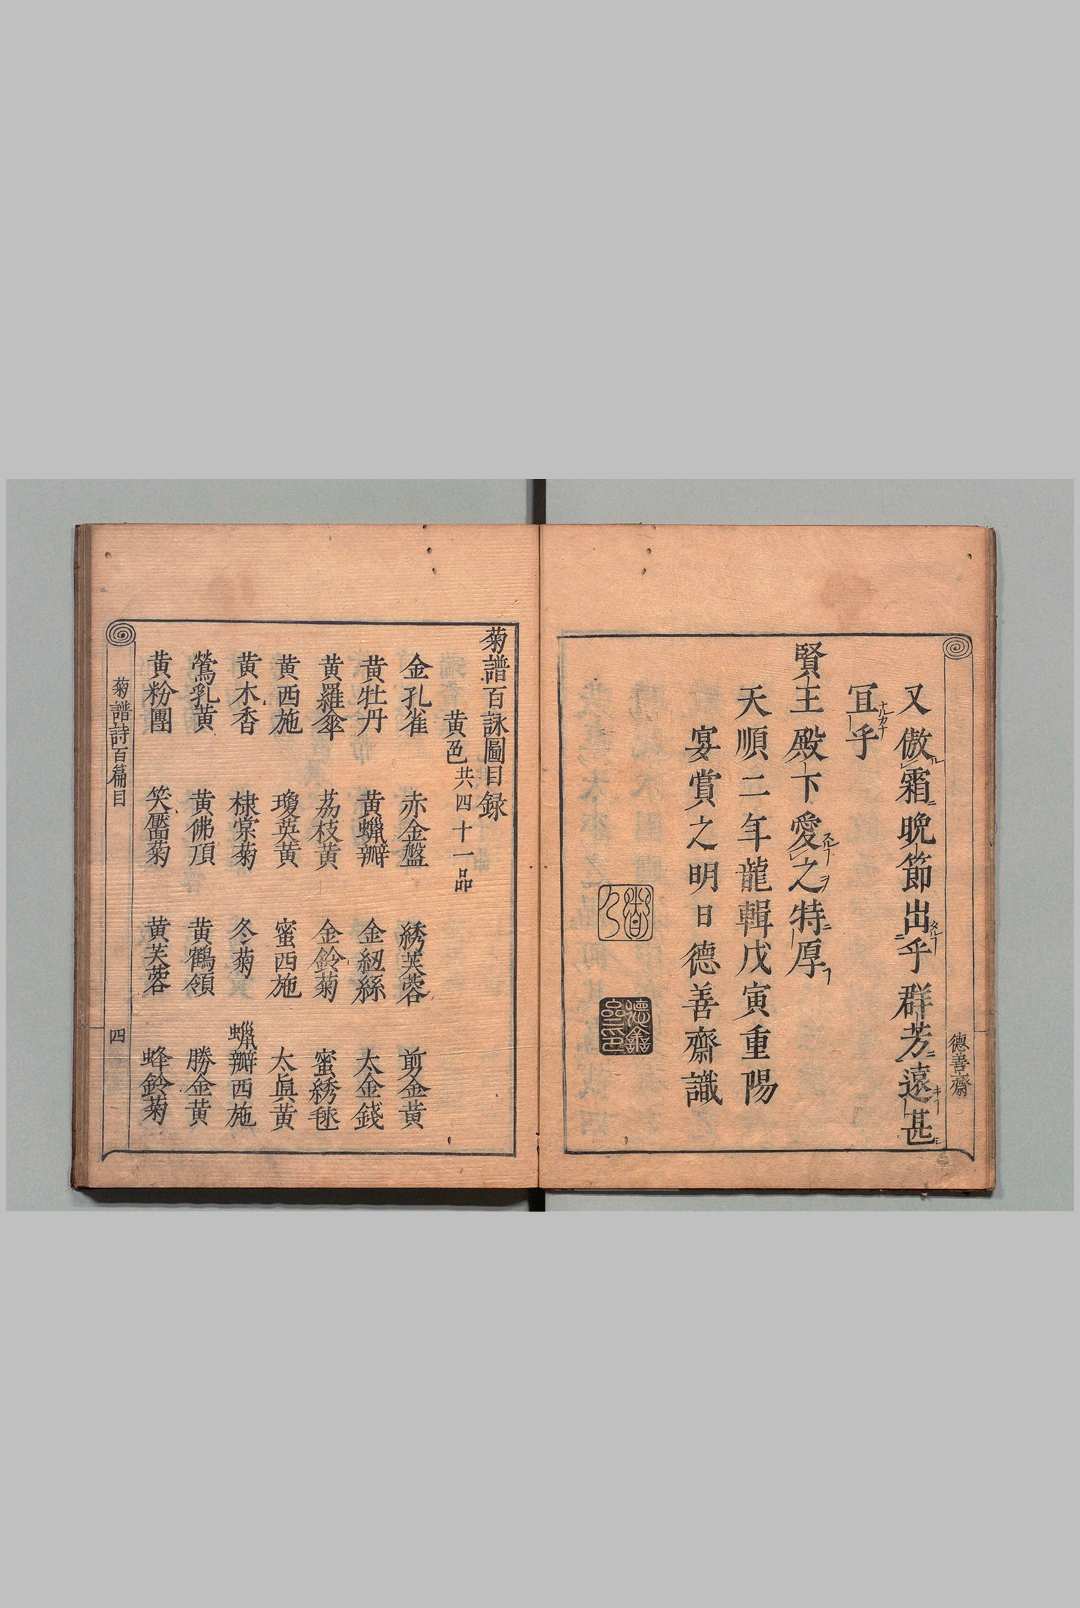 又傲霜晩節出乎群芳遠甚
冝乎
賢王殿下愛之特厚
天順二年龍輯戊寅重陽
宴賞之明日德善齋識
德善齋
菊譜百詠圖目録
黄色共四十一品
金孔雀　赤金盤　綉芙蓉　剪金黄
黄牡丹　黄蠟瓣　金紐絲　太金錢
黄羅傘　茘枝黄　金鈴菊　蜜綉毬
黄西施　瓊英黄　蜜西施　太眞黄
黄木香　棣棠菊　冬菊　蠟瓣西施
鶯乳黄　黄佛頂　黄鶴領　勝金黄
黄粉團　笑靨菊　黄芙蓉　蜂鈴菊
菊譜詩百篇目　四